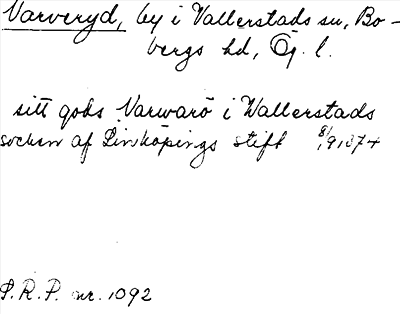 Varveryd, by i Vallerstads sn, Bo-
bergs hd, Ög. l.
sitt gods Varwarö i Wallerstads
socken af Linköpings stift 8/9 1374
S.R.P. nr. 1092